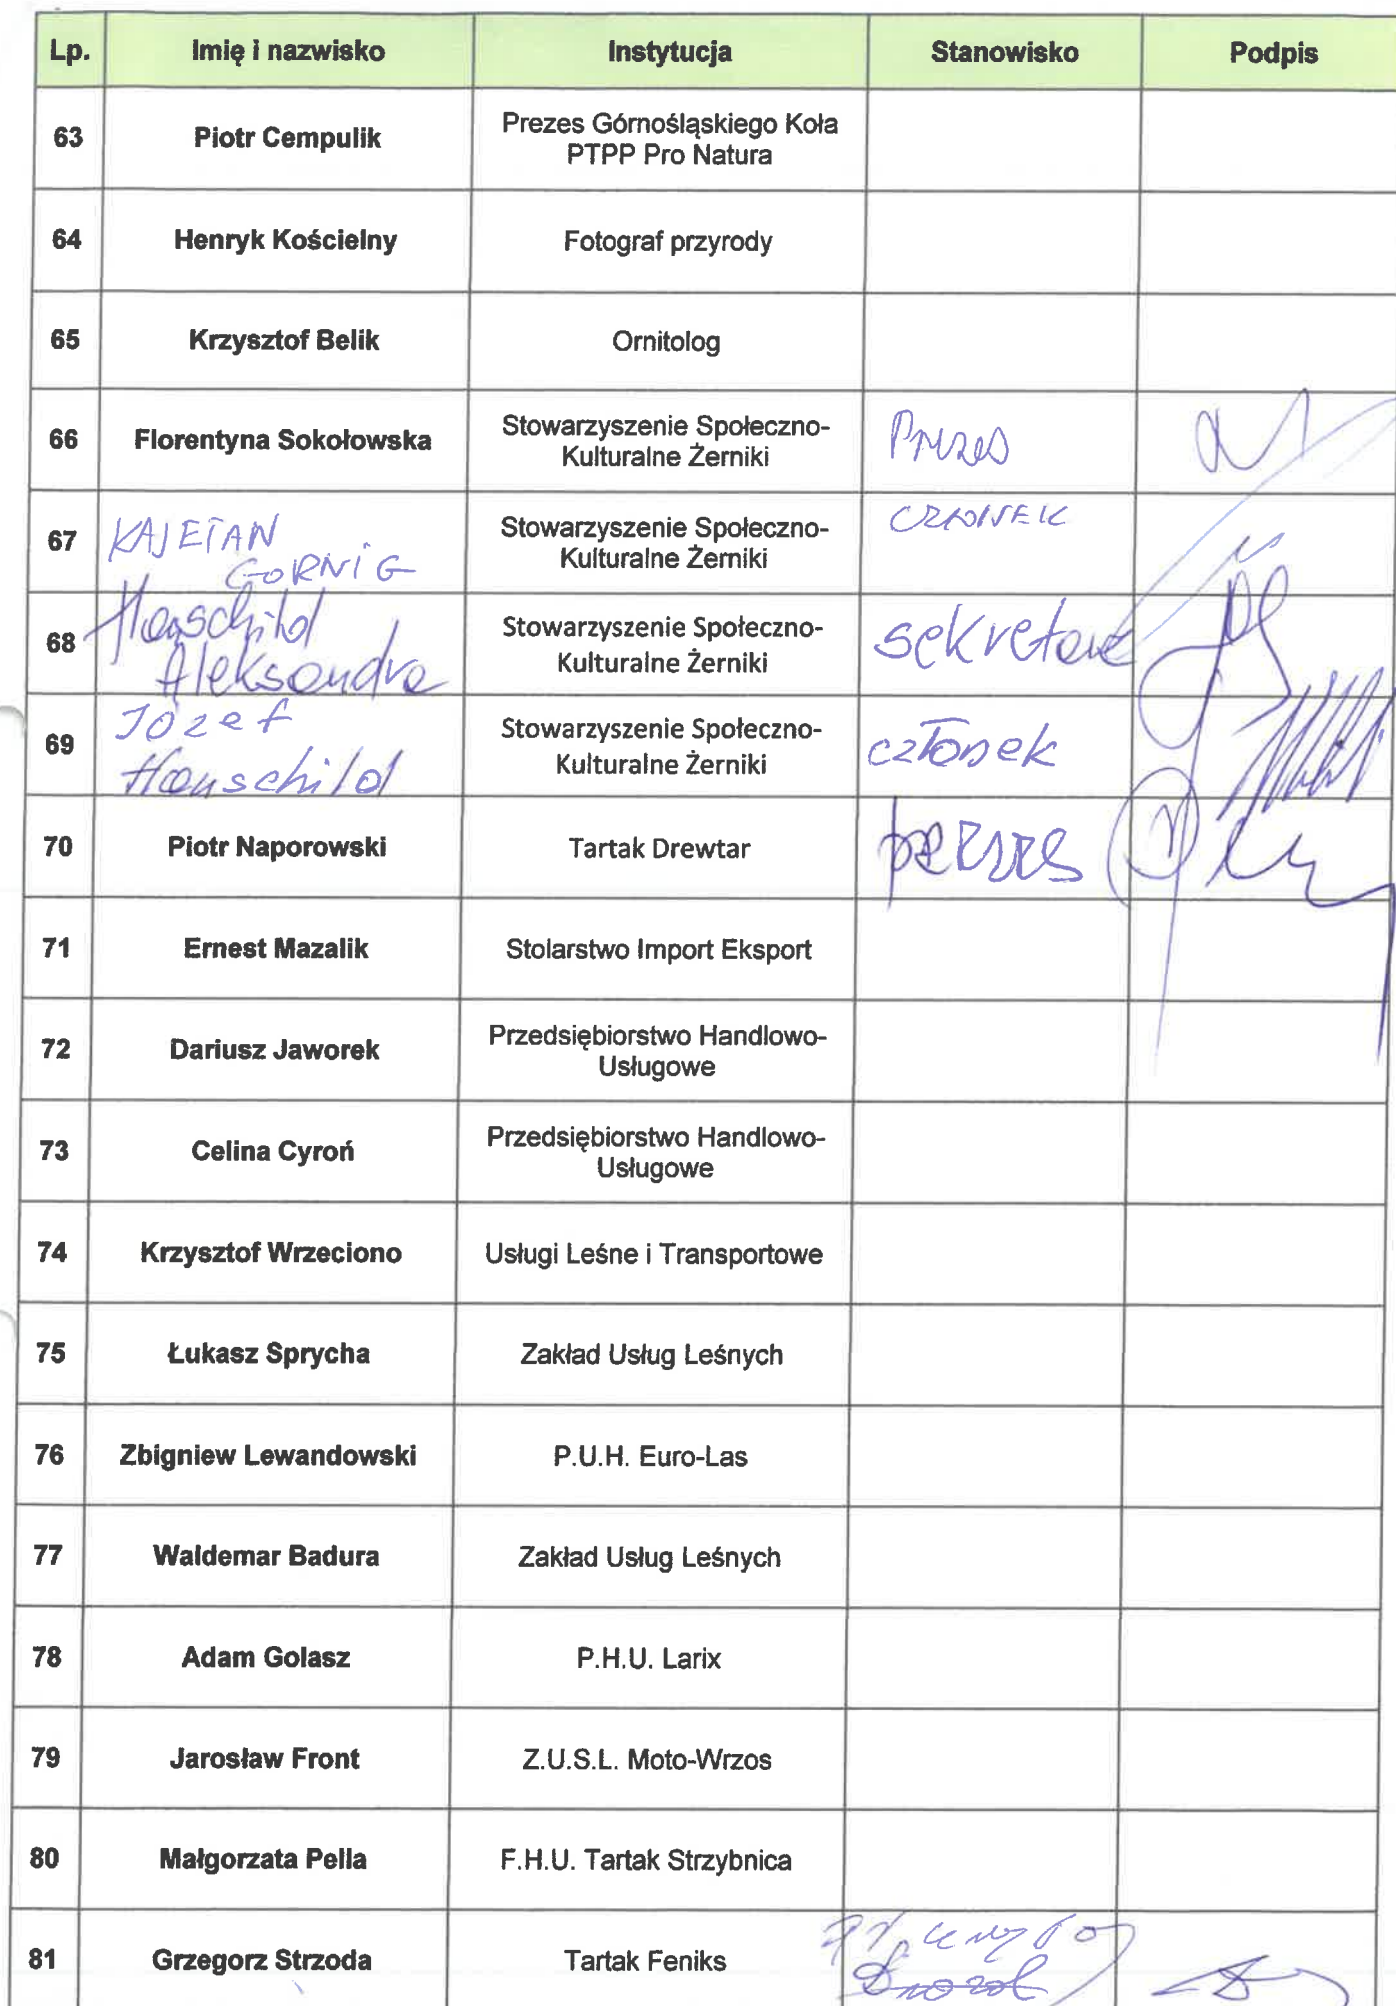 Lp. Imię i nazwisko Instytucja Stanowisko Podpis
63 Piotr Cempulik Prezes Górnośląskiego Koła
PTPP Pro Natura
64 Henryk Kościelny Fotograf przyrody
65 Krzysztof Belik Ornitolog
66 Florentyna Sokołowska Stowarzyszenie Społeczno-
Kulturalne Żerniki Prezes
67 KAJETAN
GORNIG Stowarzyszenie Społeczno-
Kulturalne Żerniki CZŁONEK
68 Hanschild
Aleksandra Stowarzyszenie Społeczno-
Kulturalne Żerniki sekretarz
69 Józef
Hanschild Stowarzyszenie Społeczno-
Kulturalne Żerniki członek
70 Piotr Naporowski Tartak Drewtar
71 Ernest Mazalik Stolarstwo Import Eksport
72 Dariusz Jaworek Przedsiębiorstwo Handlowo-
Usługowe
73 Celina Cyroń Przedsiębiorstwo Handlowo-
Usługowe
74 Krzysztof Wrzeciono Usługi Leśne i Transportowe
75 Łukasz Sprycha Zakład Usług Leśnych
76 Zbigniew Lewandowski P.U.H. Euro-Las
77 Waldemar Badura Zakład Usług Leśnych
78 Adam Golasz P.H.U. Larix
79 Jarosław Front Z.U.S.L. Moto-Wrzos
80 Małgorzata Pella F.H.U. Tartak Strzybnica
81 Grzegorz Strzoda Tartak Feniks